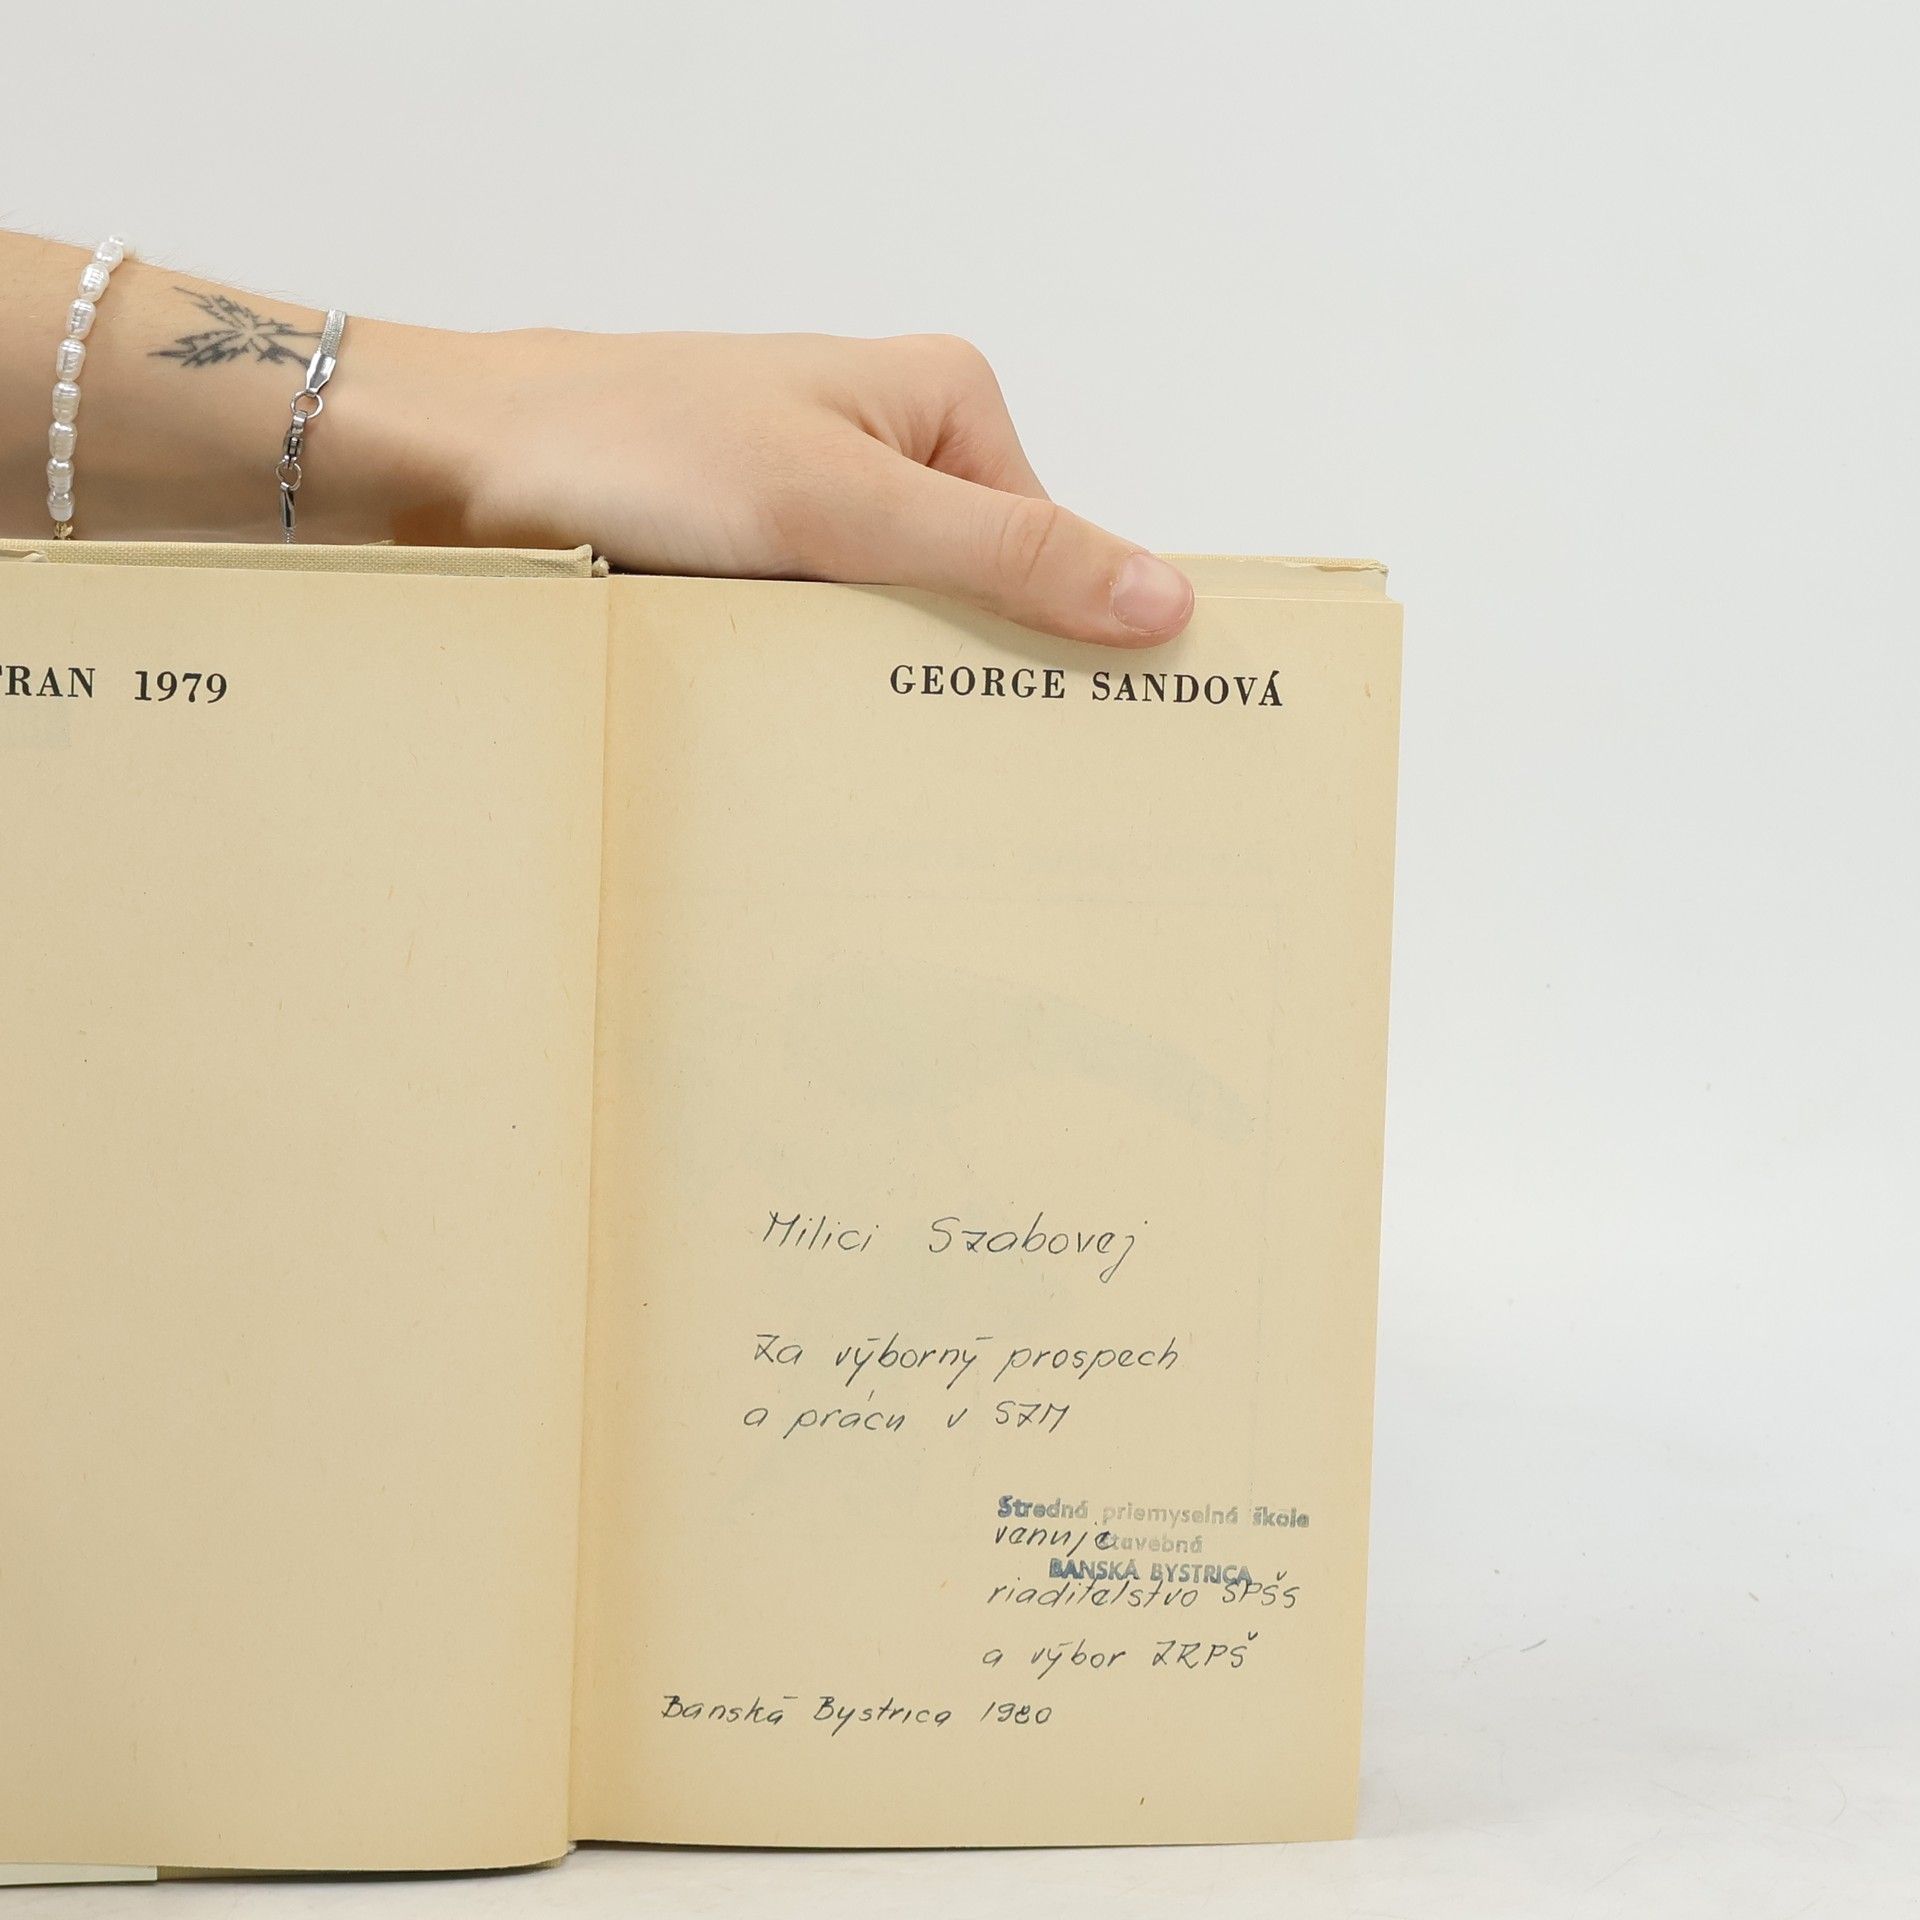 TRAN 1979
GEORGE SANDOVÁ
Milici Szabovej
Za výborný prospech
a prácu v SZM
Stredná priemyselná škola
venuje
stavebná
BANSKÁ BYSTRICA
riaditelstvo SPŠS
a výbor ZRPŠ
Banská Bystrica 1980